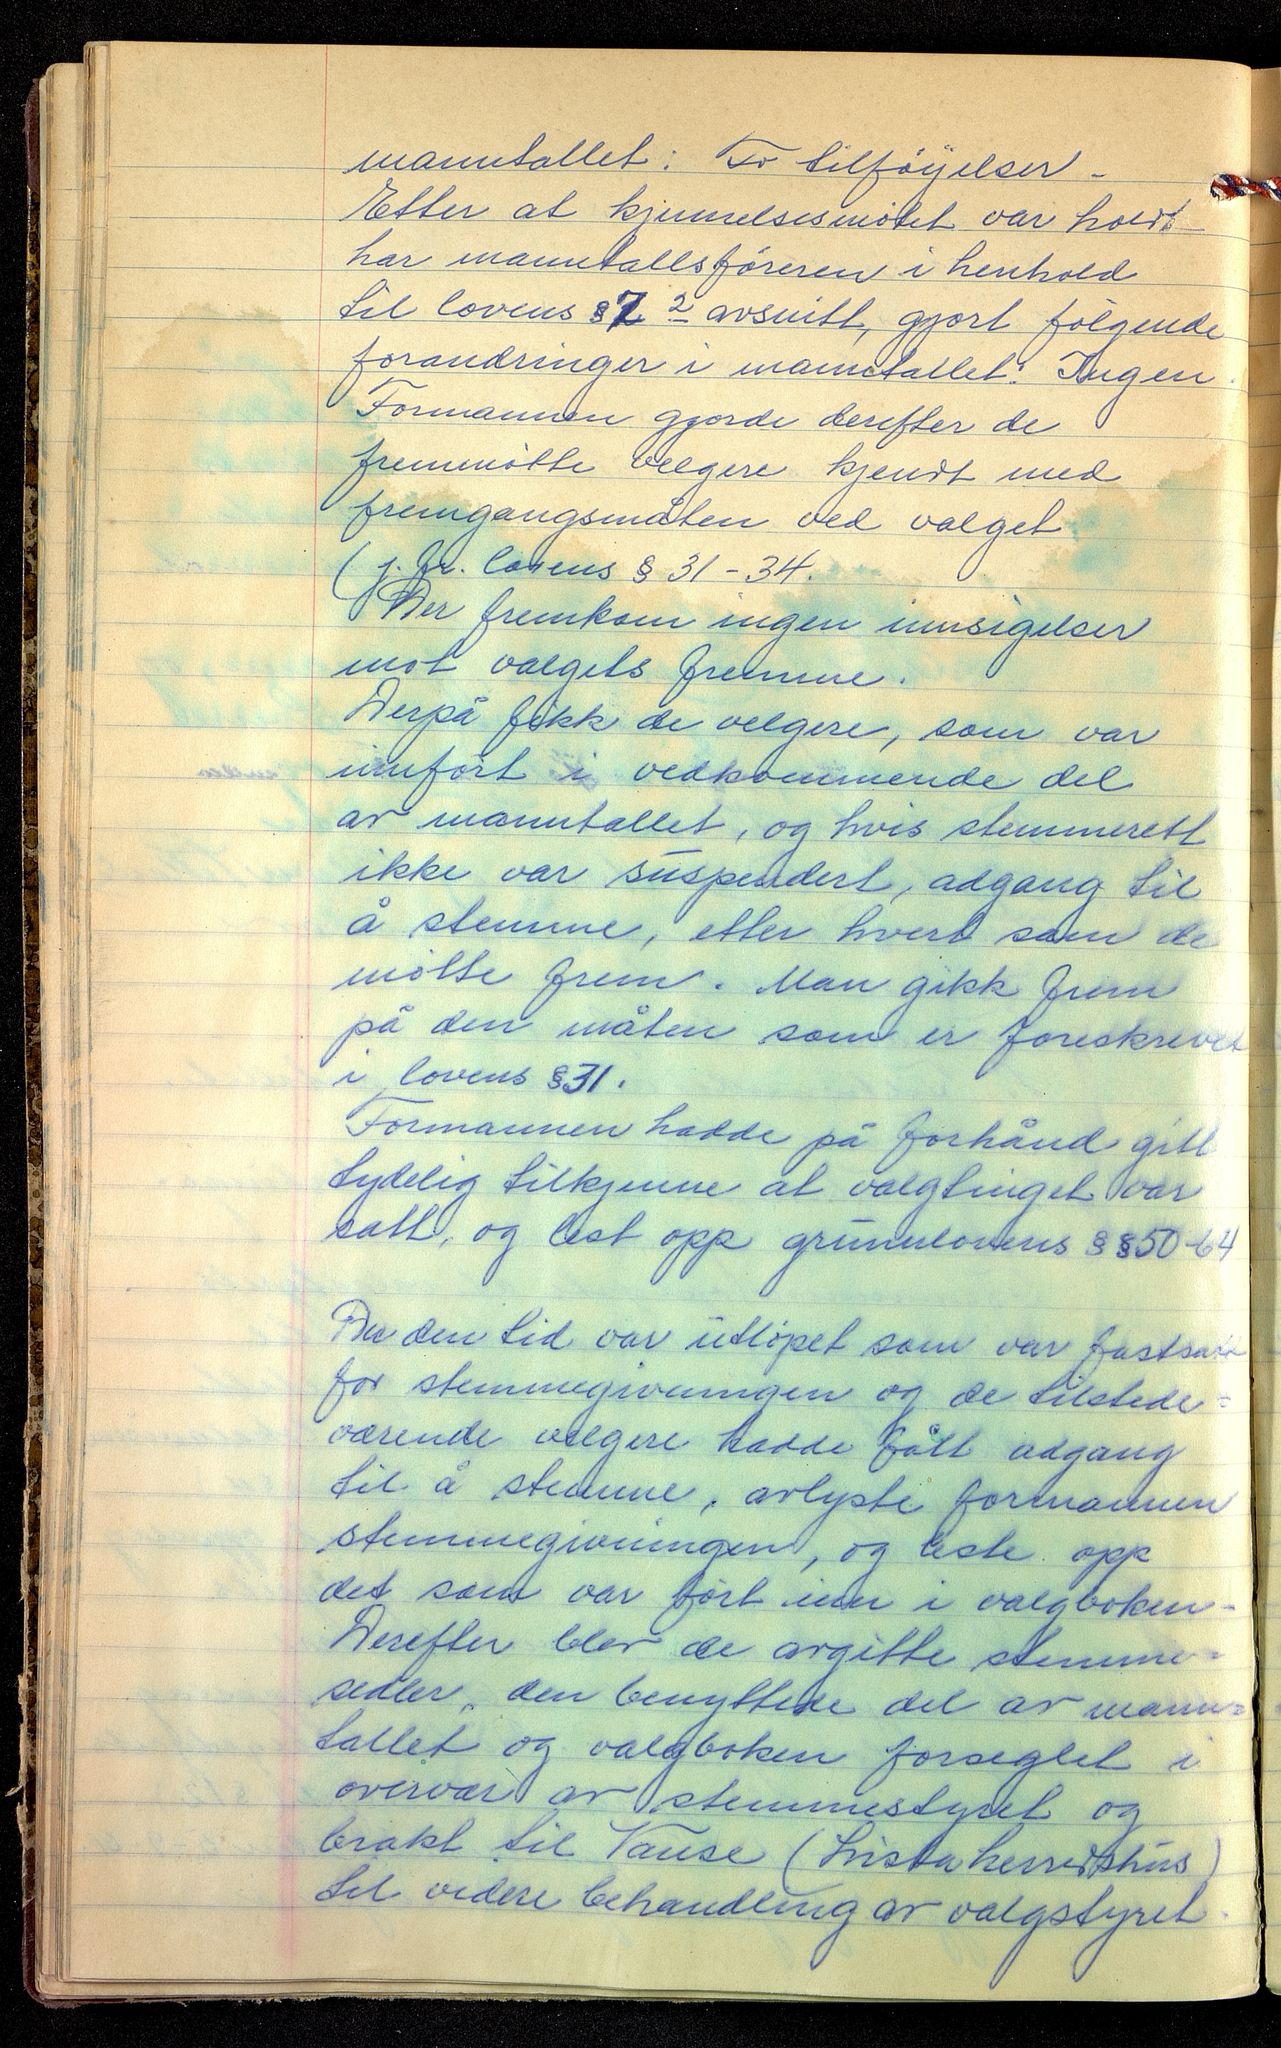 manntallet: To tilføyelser -
Etter at kjennelsesmøtet var holdt
har manntallsføreren i henhold
til lovens § 7 2 avsnitt, gjort følgende
forandringer i manntallet: Ingen.
Formannen gjorde derefter de
fremmøtte velgere kjendt med
fremgangsmåten ved valget
(j. fr. lovens § 31-34.
Der fremkom ingen innsigelser
mot valgets fremme.
Derpå fikk de velgere, som var
innført i vedkommende del
av manntallet, og hvis stemmerett
ikke var suspendert, adgang til
å stemme, etter hvert som de
møtte frem. Man gikk frem
på den måten som er foreskrevet
i lovens § 31.
Formannen hadde på forhånd gitt
tydelig tilkjenne at valgtinget var
satt, og lest opp grunnlovens § §50-64
Da den tid var utløpet som var fastsatt
for stemmegivningen og de tilstede=
værende velgere hadde fått adgang
til å stemme, avlyste formannen
stemmegivningen, og leste opp
det som var ført inn i valgboken-
Derefter blev de avgitte stemme=
sedler, den benyttede del av mann=
tallet og valgboken forseglet i
overvær av stemmestyret og
brakt til Vanse (Lista herredshus)
til videre behandling av valgstyret.